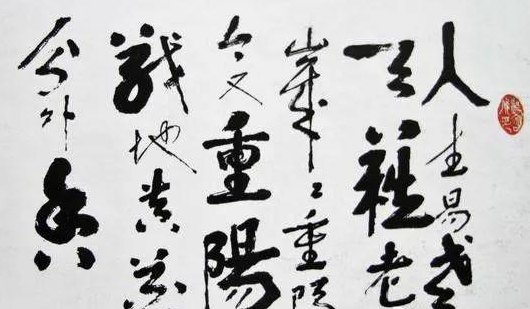 人生易老
天難老
歲々重陽
今又重陽
戰地黃花
分外香